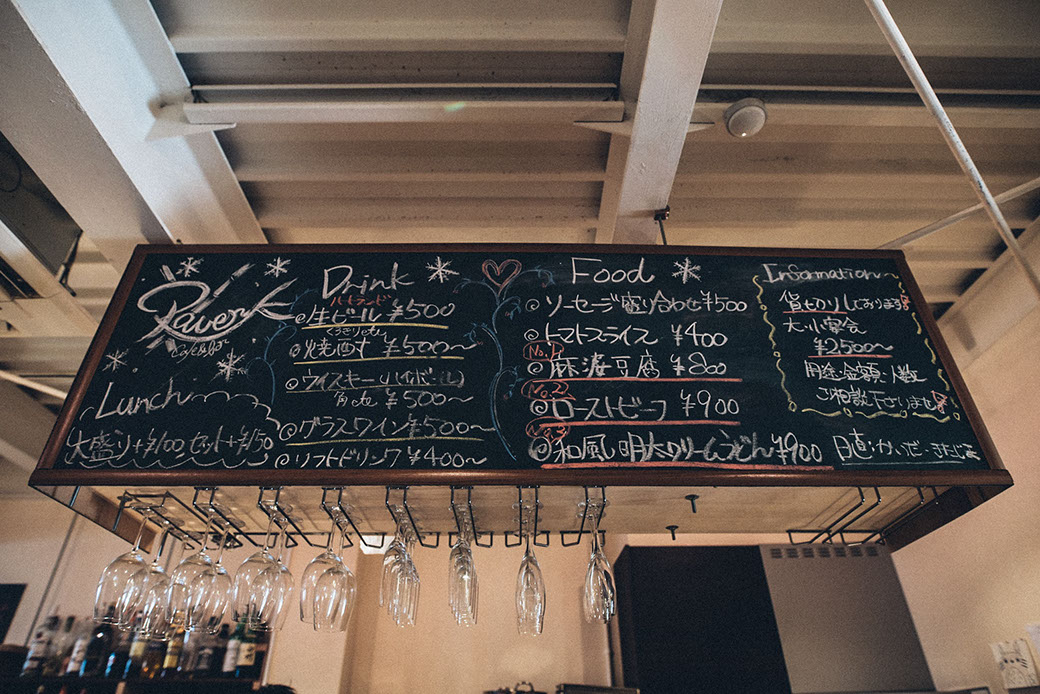 Raven
Cafe&Bar
Lunch
大盛り+¥100 セット+¥150
Drink
ハートランド
◎生ビール ¥500
くろきりetc
◎焼酎 ¥500〜
◎ウイスキー(ハイボール)
角etc ¥500〜
◎グラスワイン ¥500〜
◎ソフトドリンク ¥400〜
Food
◎ソーセージ盛り合わせ ¥500
◎トマトスライス ¥400
No.1
◎麻婆豆腐 ¥800
No.2
◎ローストビーフ ¥900
No.3
◎和風明太クリームうどん ¥900
Information
貸切りしております!
大・小宴会
¥2500〜
用途・金額・人数
ご相談下さいませ!
日直:かいだ・きたじま